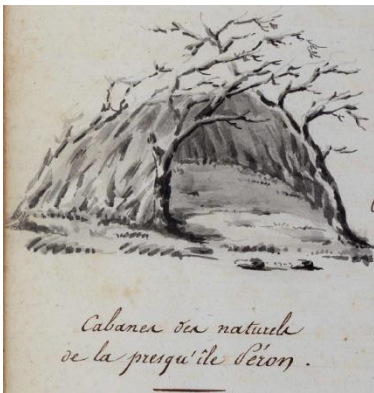 Cabanes des naturels
de la presqu'île Péron.